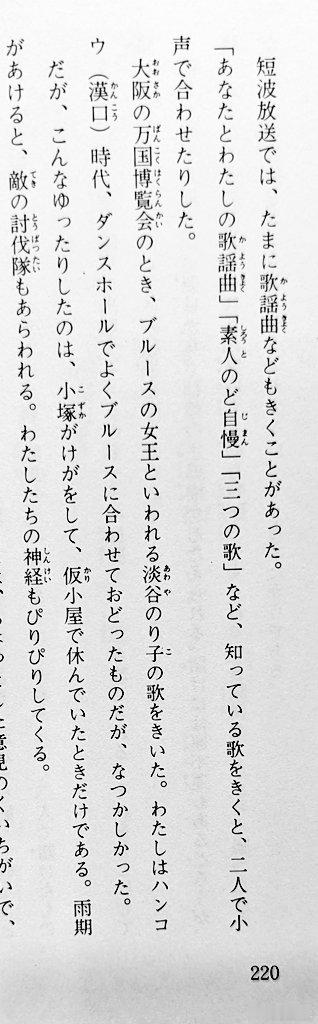 短波放送では、たまに歌謡曲などもきくことがあった。
「あなたとわたしの歌謡曲」「素人のど自慢」「三つの歌」など、知っている歌をきくと、二人で小
声で合わせたりした。
大阪の万国博覧会のとき、ブルースの女王といわれる淡谷のり子の歌をきいた。わたしはハンコ
ウ（漢口）時代、ダンスホールでよくブルースに合わせておどったものだが、なつかしかった。
だが、こんなゆったりしたのは、小塚がけがをして、仮小屋で休んでいたときだけである。雨期
があけると、敵の討伐隊もあらわれる。わたしたちの神経もぴりぴりしてくる。
意見のくいちがいで、
220